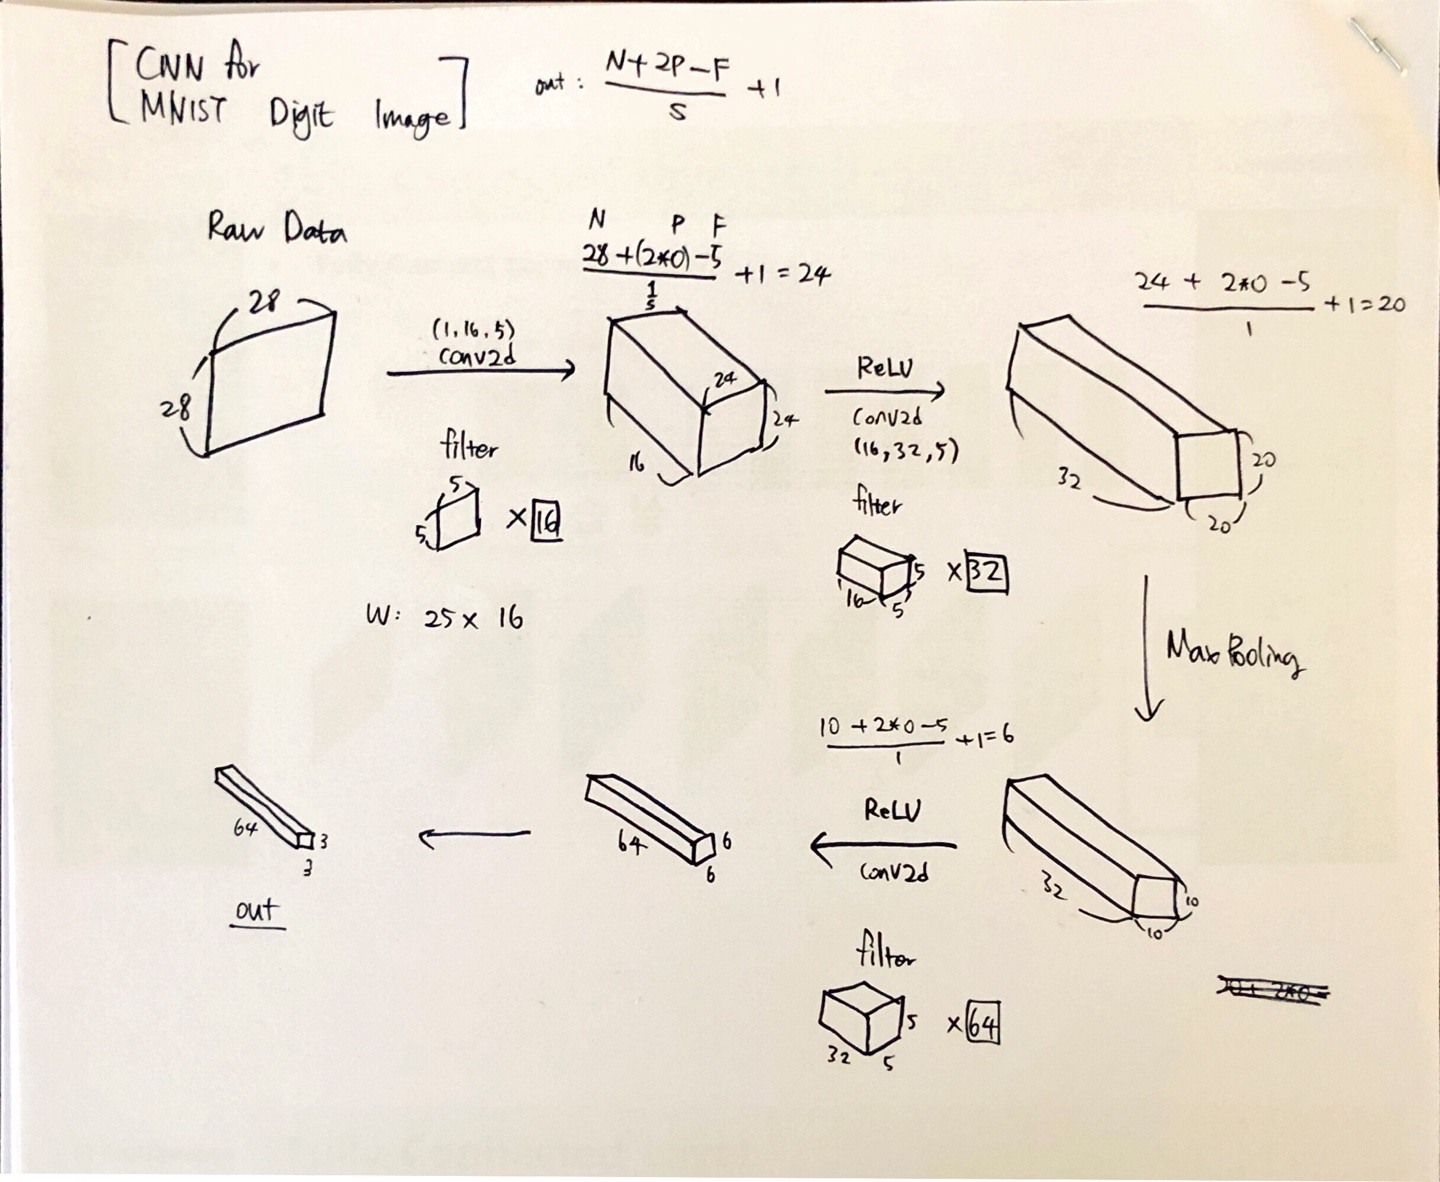 [CNN for
MNIST Digit Image]
out: N+2P-F
S
+1
Raw Data
28
28
(1,16,5)
Conv2d
filter
5
5
×16
W: 25 × 16
N P F
28+(2*0)-5
1
s
+1=24
24
24
16
ReLU
Conv2d
(16,32,5)
filter
16
5
5
×32
24 + 2*0 -5
1
+1=20
32
20
20
Max Pooling
32
10
10
10 +2*0-5
1
+1=6
ReLU
Conv2d
filter
32
5
5
×64
64
6
6
64
3
3
out